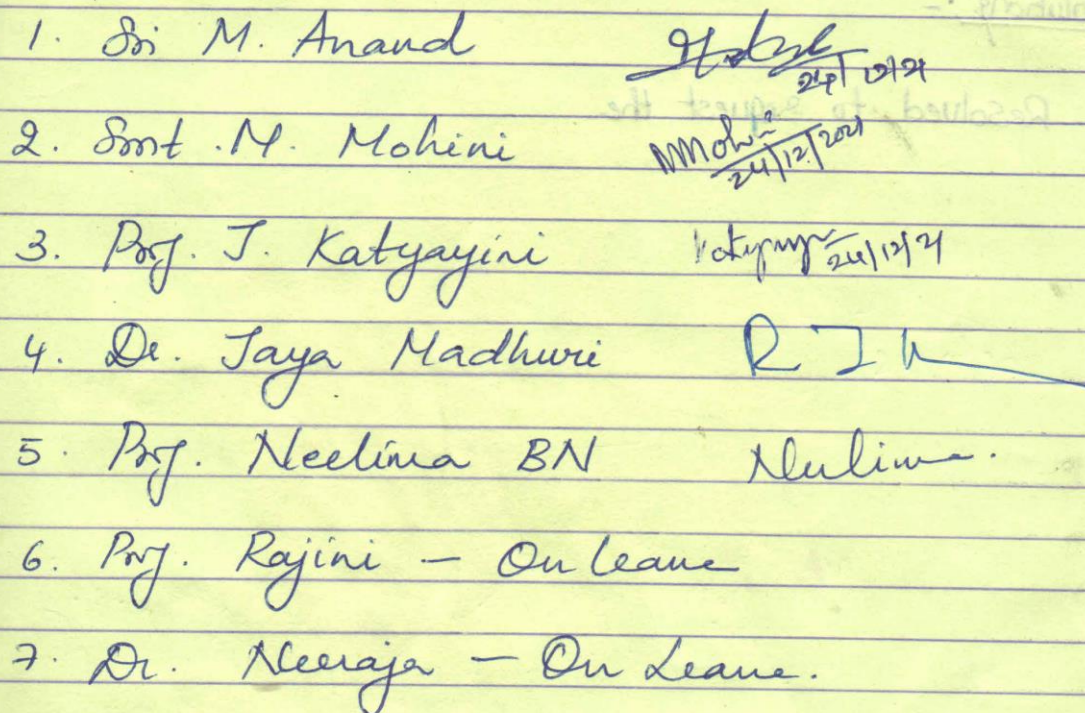 1. Sri M. Anand 24/12/21
2. Smt. M. Mohini MMohini 24/12/2021
3. Prof. J. Katyayini 24/12/21
4. Dr. Jaya Madhuri R J
5. Prof. Neelima BN Neelima.
6. Prof. Rajini – On leave
7. Dr. Neeraja – On Leave.